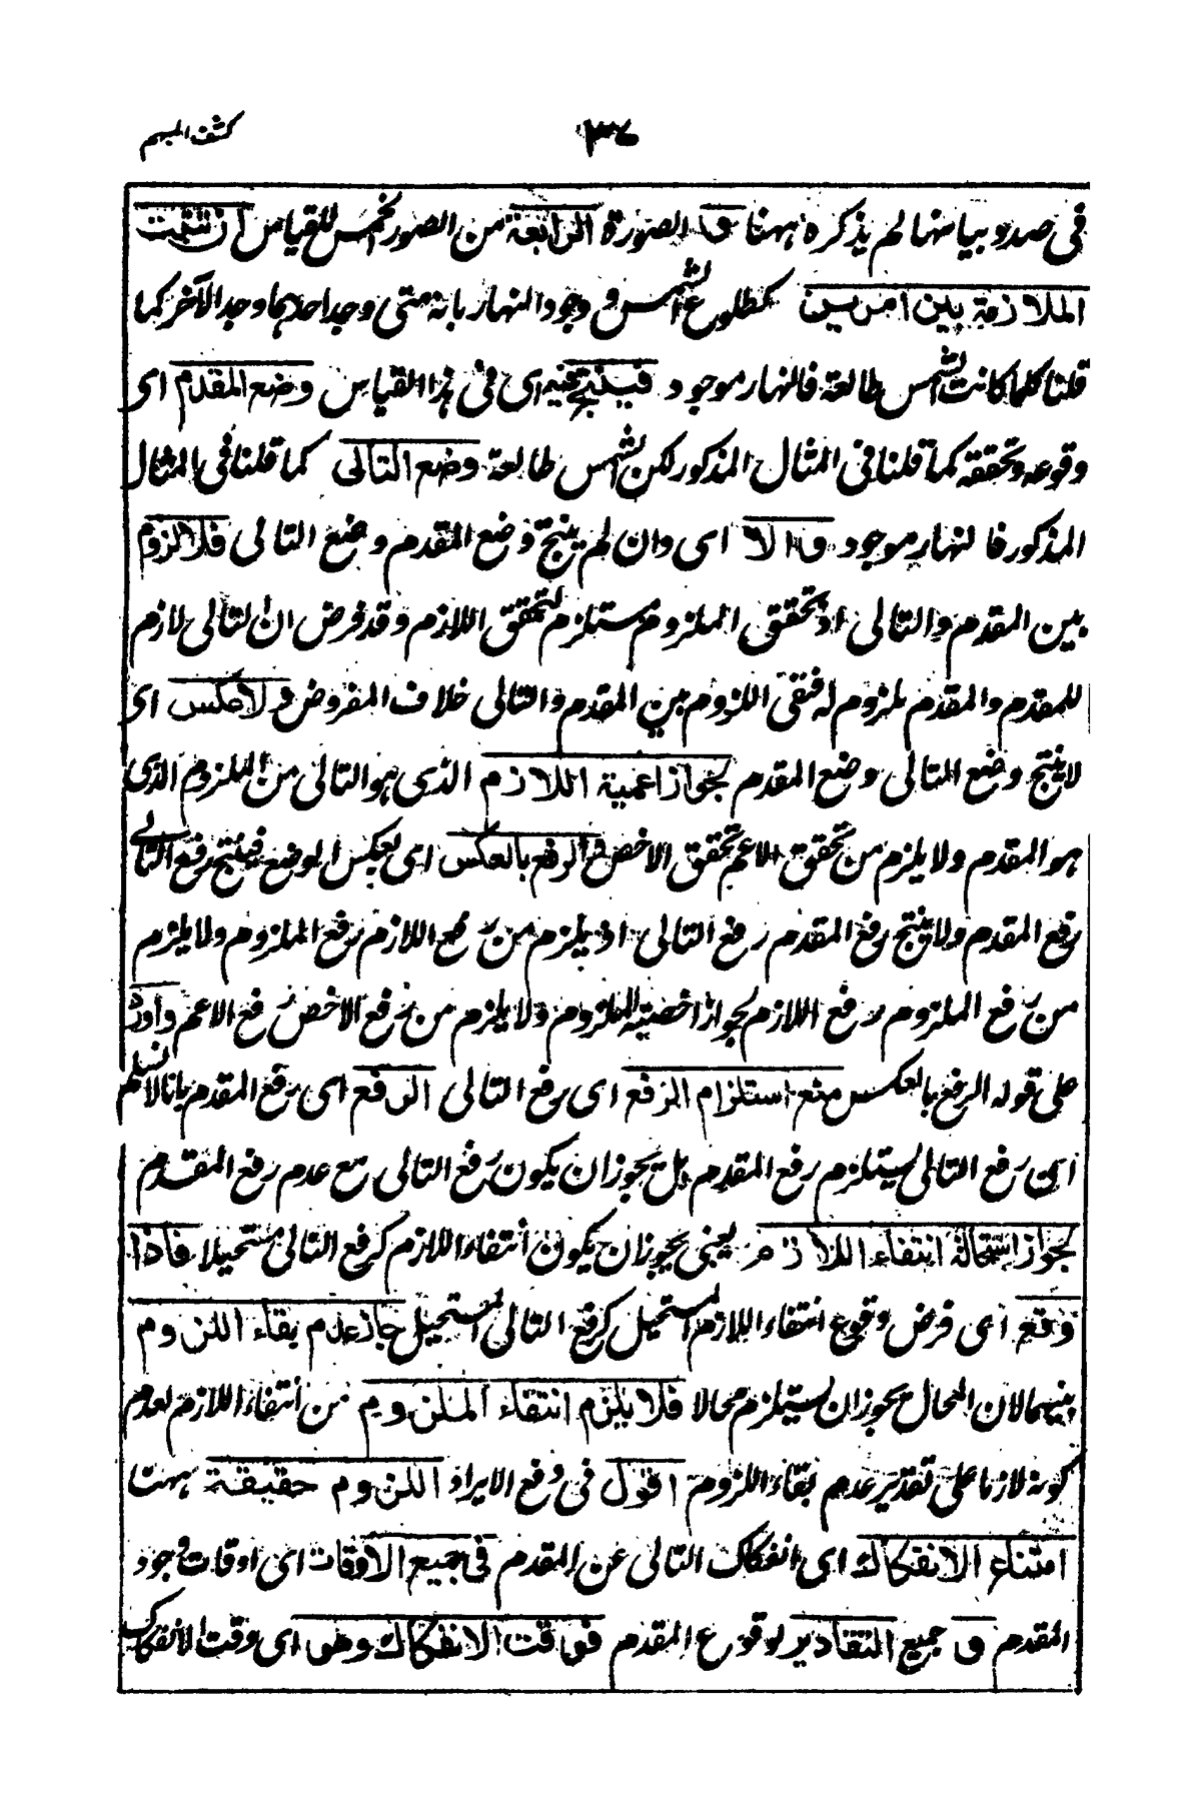 كشف المبهم
٣٦
فى صدد بيانها لم يذكره ههنا و الصورة الرابعة من الصور الخمس للقياس ان تثبت
الملازمة بين امرين كطلوع الشمس و وجود النهار بانه متى وجد احدهما وجد الآخر كما
قلنا كلما كانت الشمس طالعة فالنهار موجود فينتج فيه اى فى هذا القياس وضع المقدم اى
وقوعه وتحققه كما قلنا فى المثال المذكور لكن الشمس طالعة وضع التالى كما قلنا فى المثال
المذكور فالنهار موجود و الا اى وان لم ينتج وضع المقدم وضع التالى فلا لزوم
بين المقدم والتالى اذ تحقق الملزوم مستلزم لتحقق اللازم وقد فرض ان التالى لازم
للمقدم والمقدم ملزوم له فبقى اللزوم بين المقدم والتالى خلاف المفروض ولا عكس اى
لا ينتج وضع التالى وضع المقدم لجواز اعمية اللازم الذى هو التالى من الملزوم الذى
هو المقدم ولا يلزم من تحقق الاعم تحقق الاخص و الرفع بالعكس اى بعكس الوضع فينتج رفع التالى
رفع المقدم ولا ينتج رفع المقدم رفع التالى اذ يلزم من رفع اللازم رفع الملزوم ولا يلزم
من رفع الملزوم رفع اللازم لجواز اخصية الملزوم ولا يلزم من رفع الاخص رفع الاعم واورد
على قوله الرفع بالعكس منع استلزام الرفع اى رفع التالى الرفع اى رفع المقدم بانا لا نسلم
ان رفع التالى يستلزم رفع المقدم بل يجوز ان يكون رفع التالى مع عدم رفع المقدم
لجواز استحالة انتفاء اللازم يعنى يجوز ان يكون انتفاء اللازم كرفع التالى مستحيلا فاذا
وقع اى فرض وقوع انتفاء اللازم المستحيل كرفع التالى المستحيل جاز عدم بقاء اللزوم
بينهما لان المحال يجوز ان يستلزم محالا فلا يلزم انتفاء الملزوم من انتفاء اللازم لعدم
كونه لازما على تقدير عدم بقاء اللزوم اقول فى دفع الايراد اللزوم حقيقة
امتناع الانفكاك اى انفكاك التالى عن المقدم فى جميع الاوقات اى اوقات وجود
المقدم و جميع التقادير لوقوع المقدم فوقت الانفكاك وهو اى وقت الانفكاك